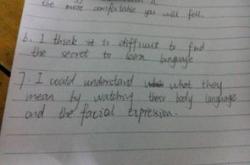 the more comfortable you will fell.
6. I think it is difficult to find
the secret to learn language
7. I could understand what they
mean by watching their body language
and the facial expression.